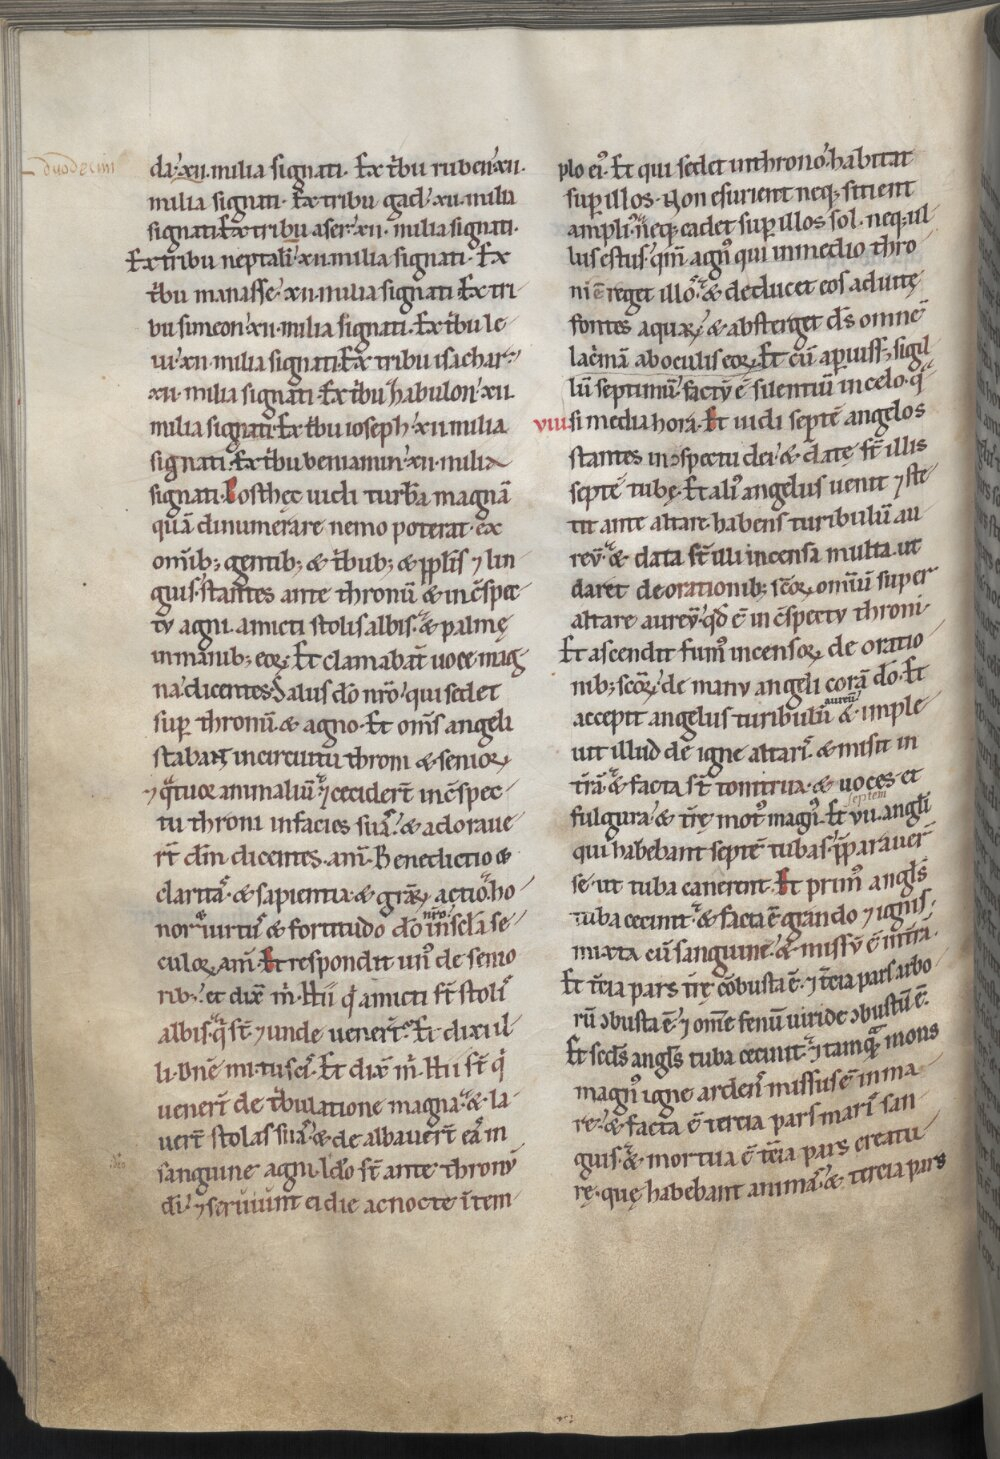 duodecim
da. xii. milia signati. Ex t̄bu ruben. xii.
milia signati. Ex tribu gad. xii. milia
signati. Ex tribu aser. xii. milia signati.
Ex tribu neptali. xii. milia signati. Ex
t̄bu manasse. xii. milia signati. Ex tri
bu simeon. xii. milia signati. Ex t̄bu le
ui. xii. milia signati. Ex tribu isachar.
xii. milia signati. Ex t̄bu habulon. xii.
milia signati. Ex t̄bu ioseph. xii. milia
signati. Ex t̄bu beniamin. xii. milia
signati. Posthęc uidi turbā magnā
quā dinumerare nemo poterat. ex
om̄ib; gentib; & t̄bub; & ppl̄is ⁊ lin
guis. stantes ante thronū & in c̄spec
tu agni. amicti stolis albis. & palmę
in manib; eoꝝ. Et clamabāt uoce mag
na dicentes. Salus dō nr̄o qui sedet
sup̄ thronū. & agno. Et om̄s angeli
stabant in circuitu throni & senioꝝ
⁊ qͣtuor animaliū. ⁊ cecider̄t in c̄spec
tu throni in facies suas. & adoraue
rt̄ dm̄ dicentes. am̄. Benedictio &
claritas. & sapientia. & gr̄aꝝ actio. ho
nor. uirtus & fortitudo dō nr̄o in scl̄a se
culoꝝ. am̄. Et respondit un᾿ de senio
rib;. et dix̄ m̄. Hii qͥ amicti st̄ stolis
albis. qͥ st̄ ⁊ unde uener̄t. Et dixi il
li. Dn̄e mi. tu scis. Et dix̄ m̄. Hii st̄ qͥ
uener̄t de t̄bulatione magna. & la
uer̄t stolas suas. & dealbauer̄t eas in
sanguine agni. Ido st̄ ante thronū
dī. ⁊ seruiunt ei die ac nocte ī tem
plo ei᾿. Et qui sedet in throno. habitat
sup̄ illos. Non esurient neq; sitient
ampli᾿. neq; cadet sup̄ illos sol. neq; ul
lus estus. qm̄ agn᾿ qui in medio thro
ni ē reget illos. & deducet eos ad uitę
fontes aquaꝝ. & absterget ds̄ omnē
lac̄mā ab oculis eoꝝ. Et cū apuiss; sigil
lū septimū. factū ē silentiū in celo. qͣ
viii. si media hora. Et uidi septē angelos
stantes in ↄspectu dei. & datę st̄ illis
septē tubę. Et ali᾿ angelus uenit ⁊ ste
tit ante altare. habens turibulū au
reū. & data st̄ illi incensa multa. ut
daret de orationib; sc̄oꝝ omniū super
altare aureū. qd̄ ē in c̄spectu throni.
Et ascendit fum᾿ incensoꝝ de oratio
nib; sc̄oꝝ. de manu angeli corā dō. Et
accepit angelus turibulū aureū & imple
uit illud de igne altaris. & misit in
tr̄ā. & facta st̄ tonitrua. & uoces et
fulgura. & tr̄ę mot᾿ magn᾿. Et vii. septem angli
qui habebant septē tubas. p̄parauer̄
se ut tuba canerent. Et prim᾿ angl̄s
tuba cecinit. & facta ē grando ⁊ ignis.
mixta cū sanguine. & missū ē in tr̄ā.
Et t̄cia pars tr̄ę cōbusta ē. ⁊ t̄cia pars arbo
rū ↄbusta ē. ⁊ om̄e fenum uiride ↄbustū ē.
Et scd̄s angl̄s tuba cecinit. ⁊ tamqͣ mons
magn᾿ igne ardens missus ē in ma
re. & facta ē tercia pars maris san
guis. & mortua ē t̄cia pars creatu
rę. quę habebant animas. & tercia pars